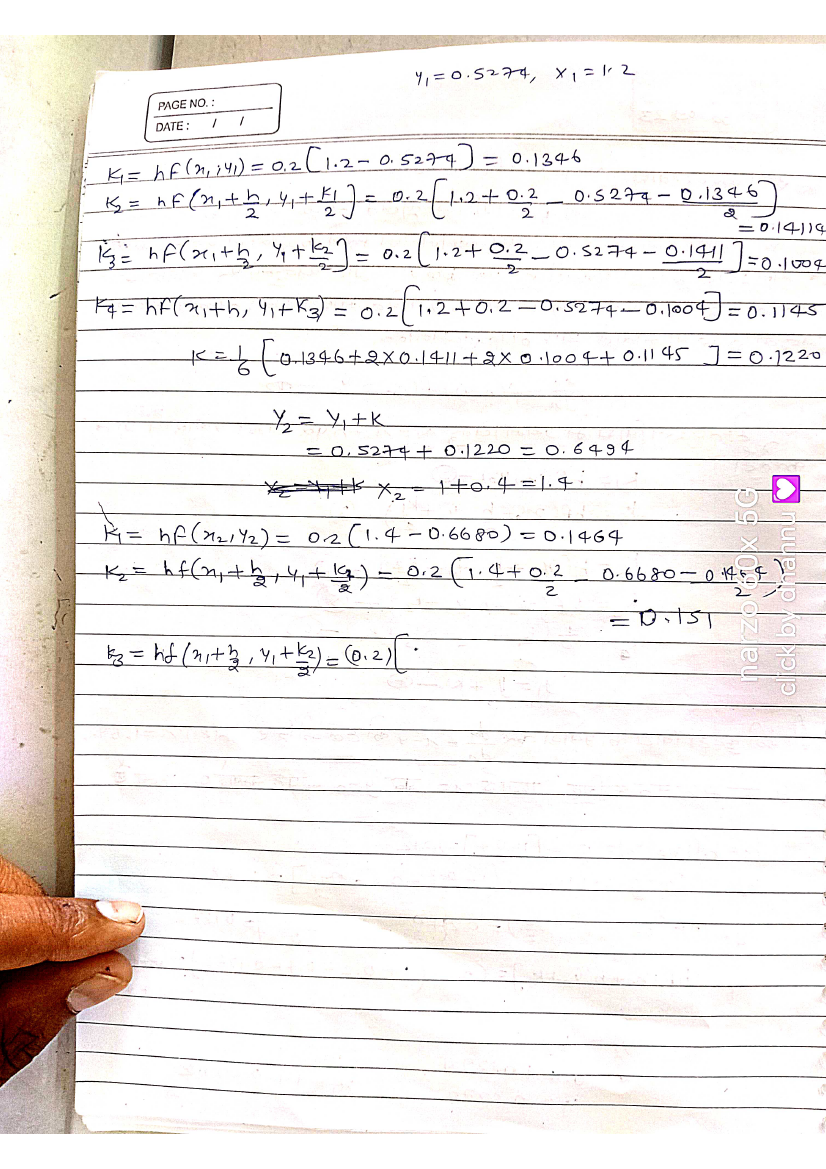 y₁ = 0.5274, x₁ = 1.2
PAGE NO. :
DATE : / /
K₁ = hf(x₁, y₁) = 0.2 [1.2 - 0.5274] = 0.1346
K₂ = hf(x₁ + h/2, y₁ + K₁/2] = 0.2 [1.2 + 0.2/2 - 0.5274 - 0.1346/2]
= 0.14114
K₃ = hf(x₁ + h/2, y₁ + K₂/2] = 0.2 [1.2 + 0.2/2 - 0.5274 - 0.1411/2] = 0.1004
K₄ = hf(x₁ + h, y₁ + K₃) = 0.2 [1.2 + 0.2 - 0.5274 - 0.1004] = 0.1145
K = 1/6 [0.1346 + 2 × 0.1411 + 2 × 0.1004 + 0.1145 ] = 0.1220
Y₂ = Y₁ + K
= 0.5274 + 0.1220 = 0.6494
x₂ = 1 + 0.4 = 1.4
K₁ = hf(x₂, y₂) = 0.2 (1.4 - 0.6680) = 0.1464
K₂ = hf(x₁ + h/2, y₁ + /2) = 0.2 (1.4 + 0.2/2 - 0.6680 - 0.1464/2)
= 0.151
k₃ = hf(x₁ + h/2, y₁ + K₂/2) = (0.2) [
narzo 60x 5G
click by dhannu